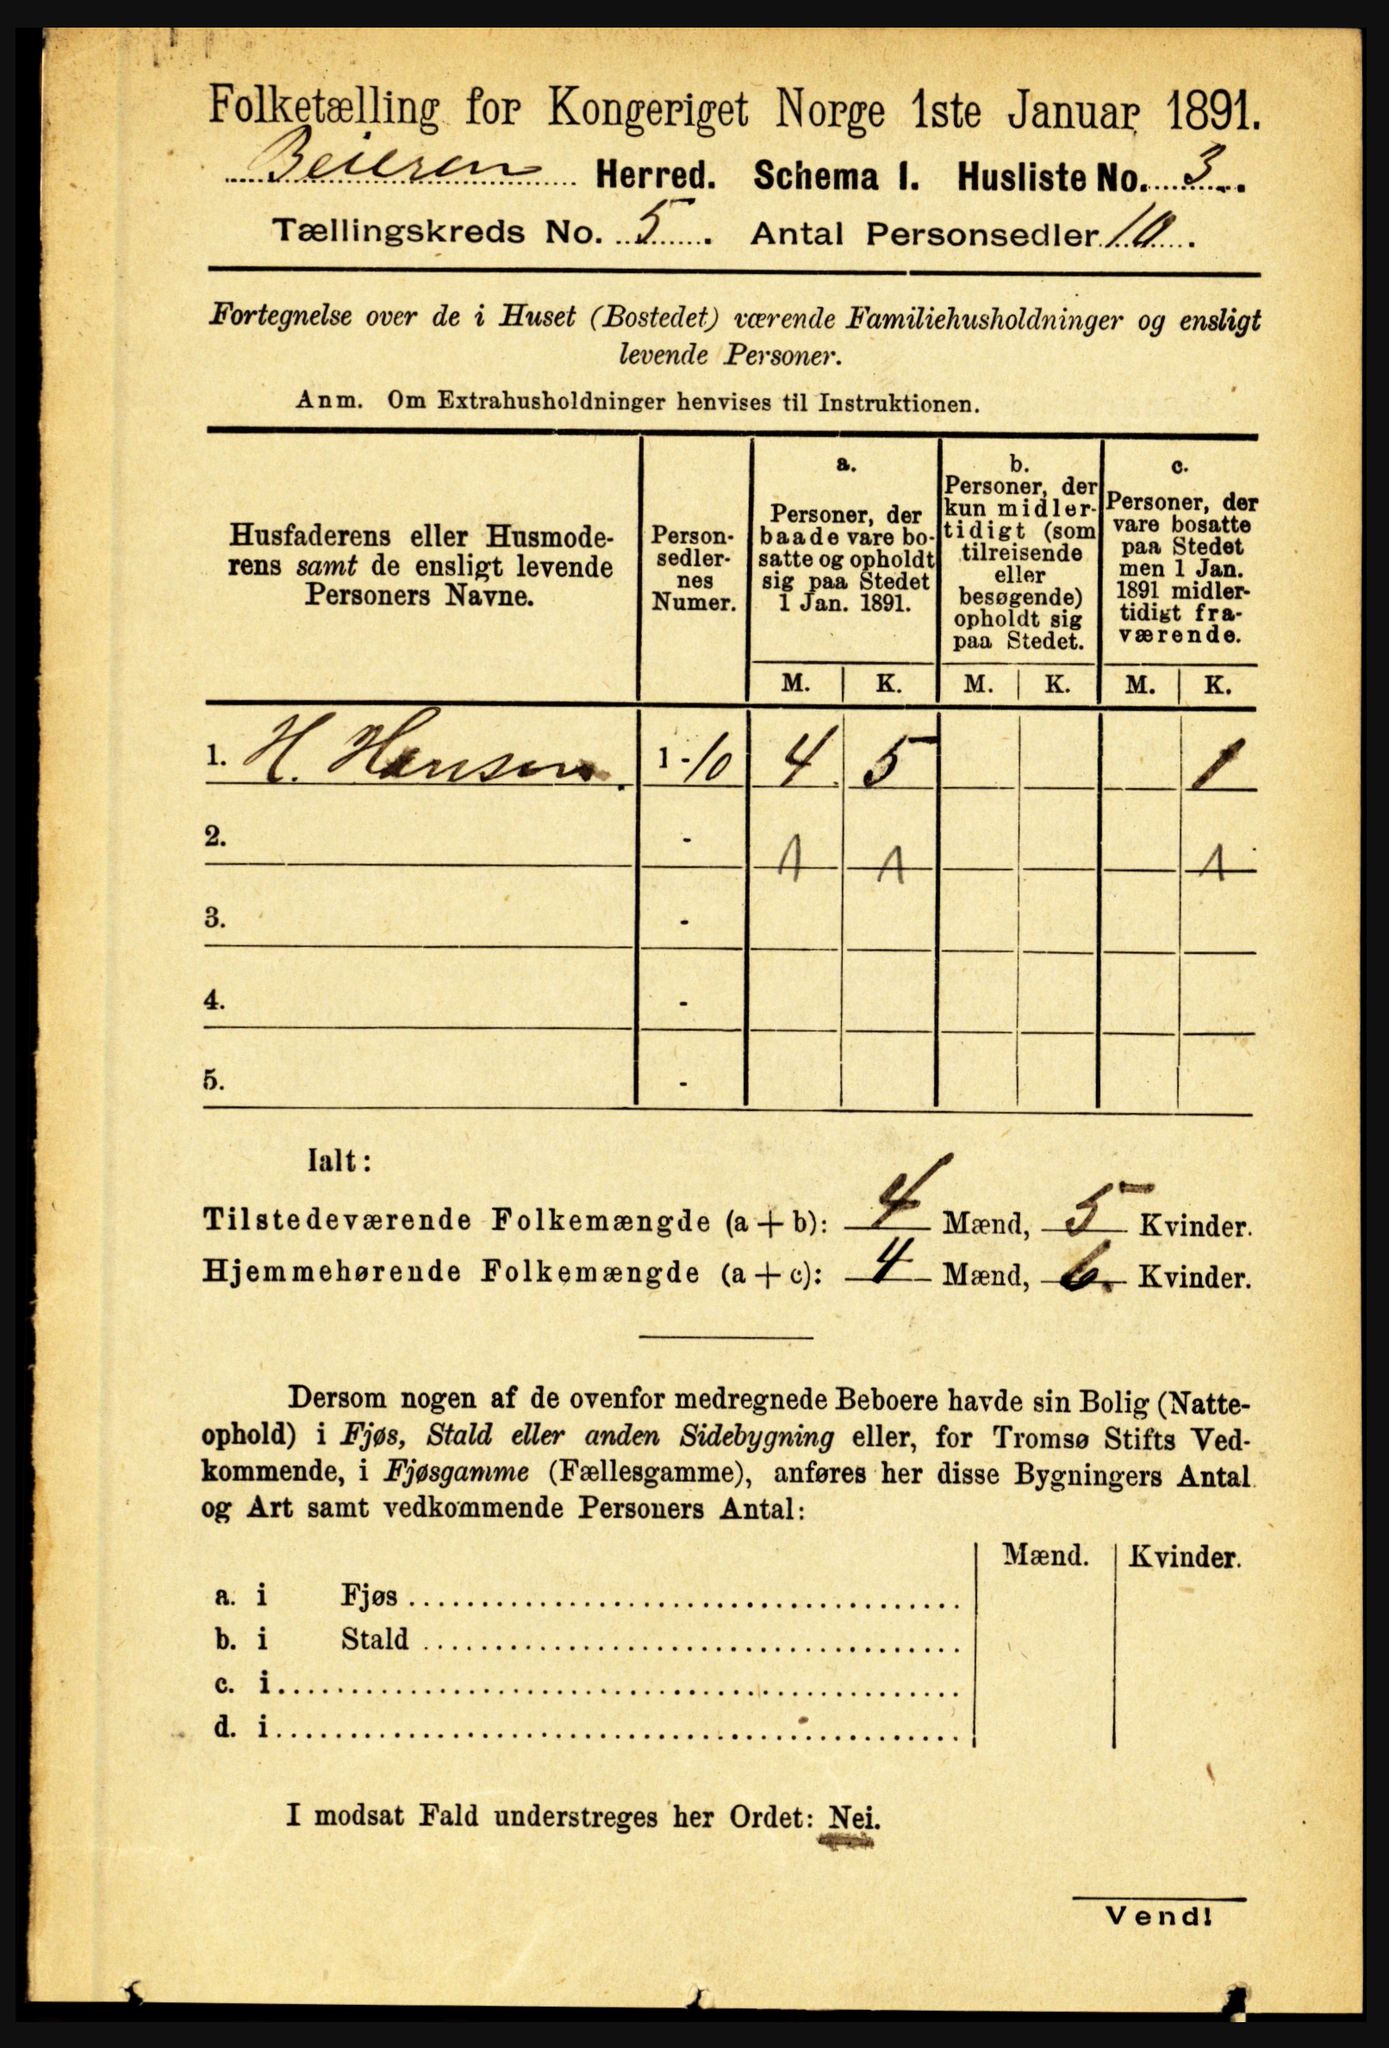 Folketælling for Kongeriget Norge 1ste Januar 1891.
Beieren Herred. Schema I. Husliste No. 3.
Tællingskreds No. 5. Antal Personsedler 10.
Fortegnelse over de i Huset (Bostedet) værende Familiehusholdninger og ensligt
levende Personer.
Anm. Om Extrahusholdninger henvises til Instruktionen.
Husfaderens eller Husmode-
rens samt de ensligt levende
Personers Navne.
Person-
sedler-
nes
Numer.
a.
Personer, der
baade vare bo-
satte og opholdt
sig paa Stedet
1 Jan. 1891.
b.
Personer, der
kun midler-
tidigt (som
tilreisende
eller
besøgende)
opholdt sig
paa Stedet.
c.
Personer, der
vare bosatte
paa Stedet
men 1 Jan.
1891 midler-
tidigt fra-
værende.
M. K. M. K. M. K.
1. H. Hansen. 1-10 4 5 1
2. - 1 1 1
3. -
4. -
5. -
Ialt:
Tilstedeværende Folkemængde (a + b): 4 Mænd, 5 Kvinder.
Hjemmehørende Folkemængde (a + c): 4 Mænd, 6. Kvinder.
Dersom nogen af de ovenfor medregnede Beboere havde sin Bolig (Natte-
ophold) i Fjøs, Stald eller anden Sidebygning eller, for Tromsø Stifts Ved-
kommende, i Fjøsgamme (Fællesgamme), anføres her disse Bygningers Antal
og Art samt vedkommende Personers Antal:
Mænd. Kvinder.
a. i Fjøs
b. i Stald
c. i
d. i
I modsat Fald understreges her Ordet: Nei.
Vend!